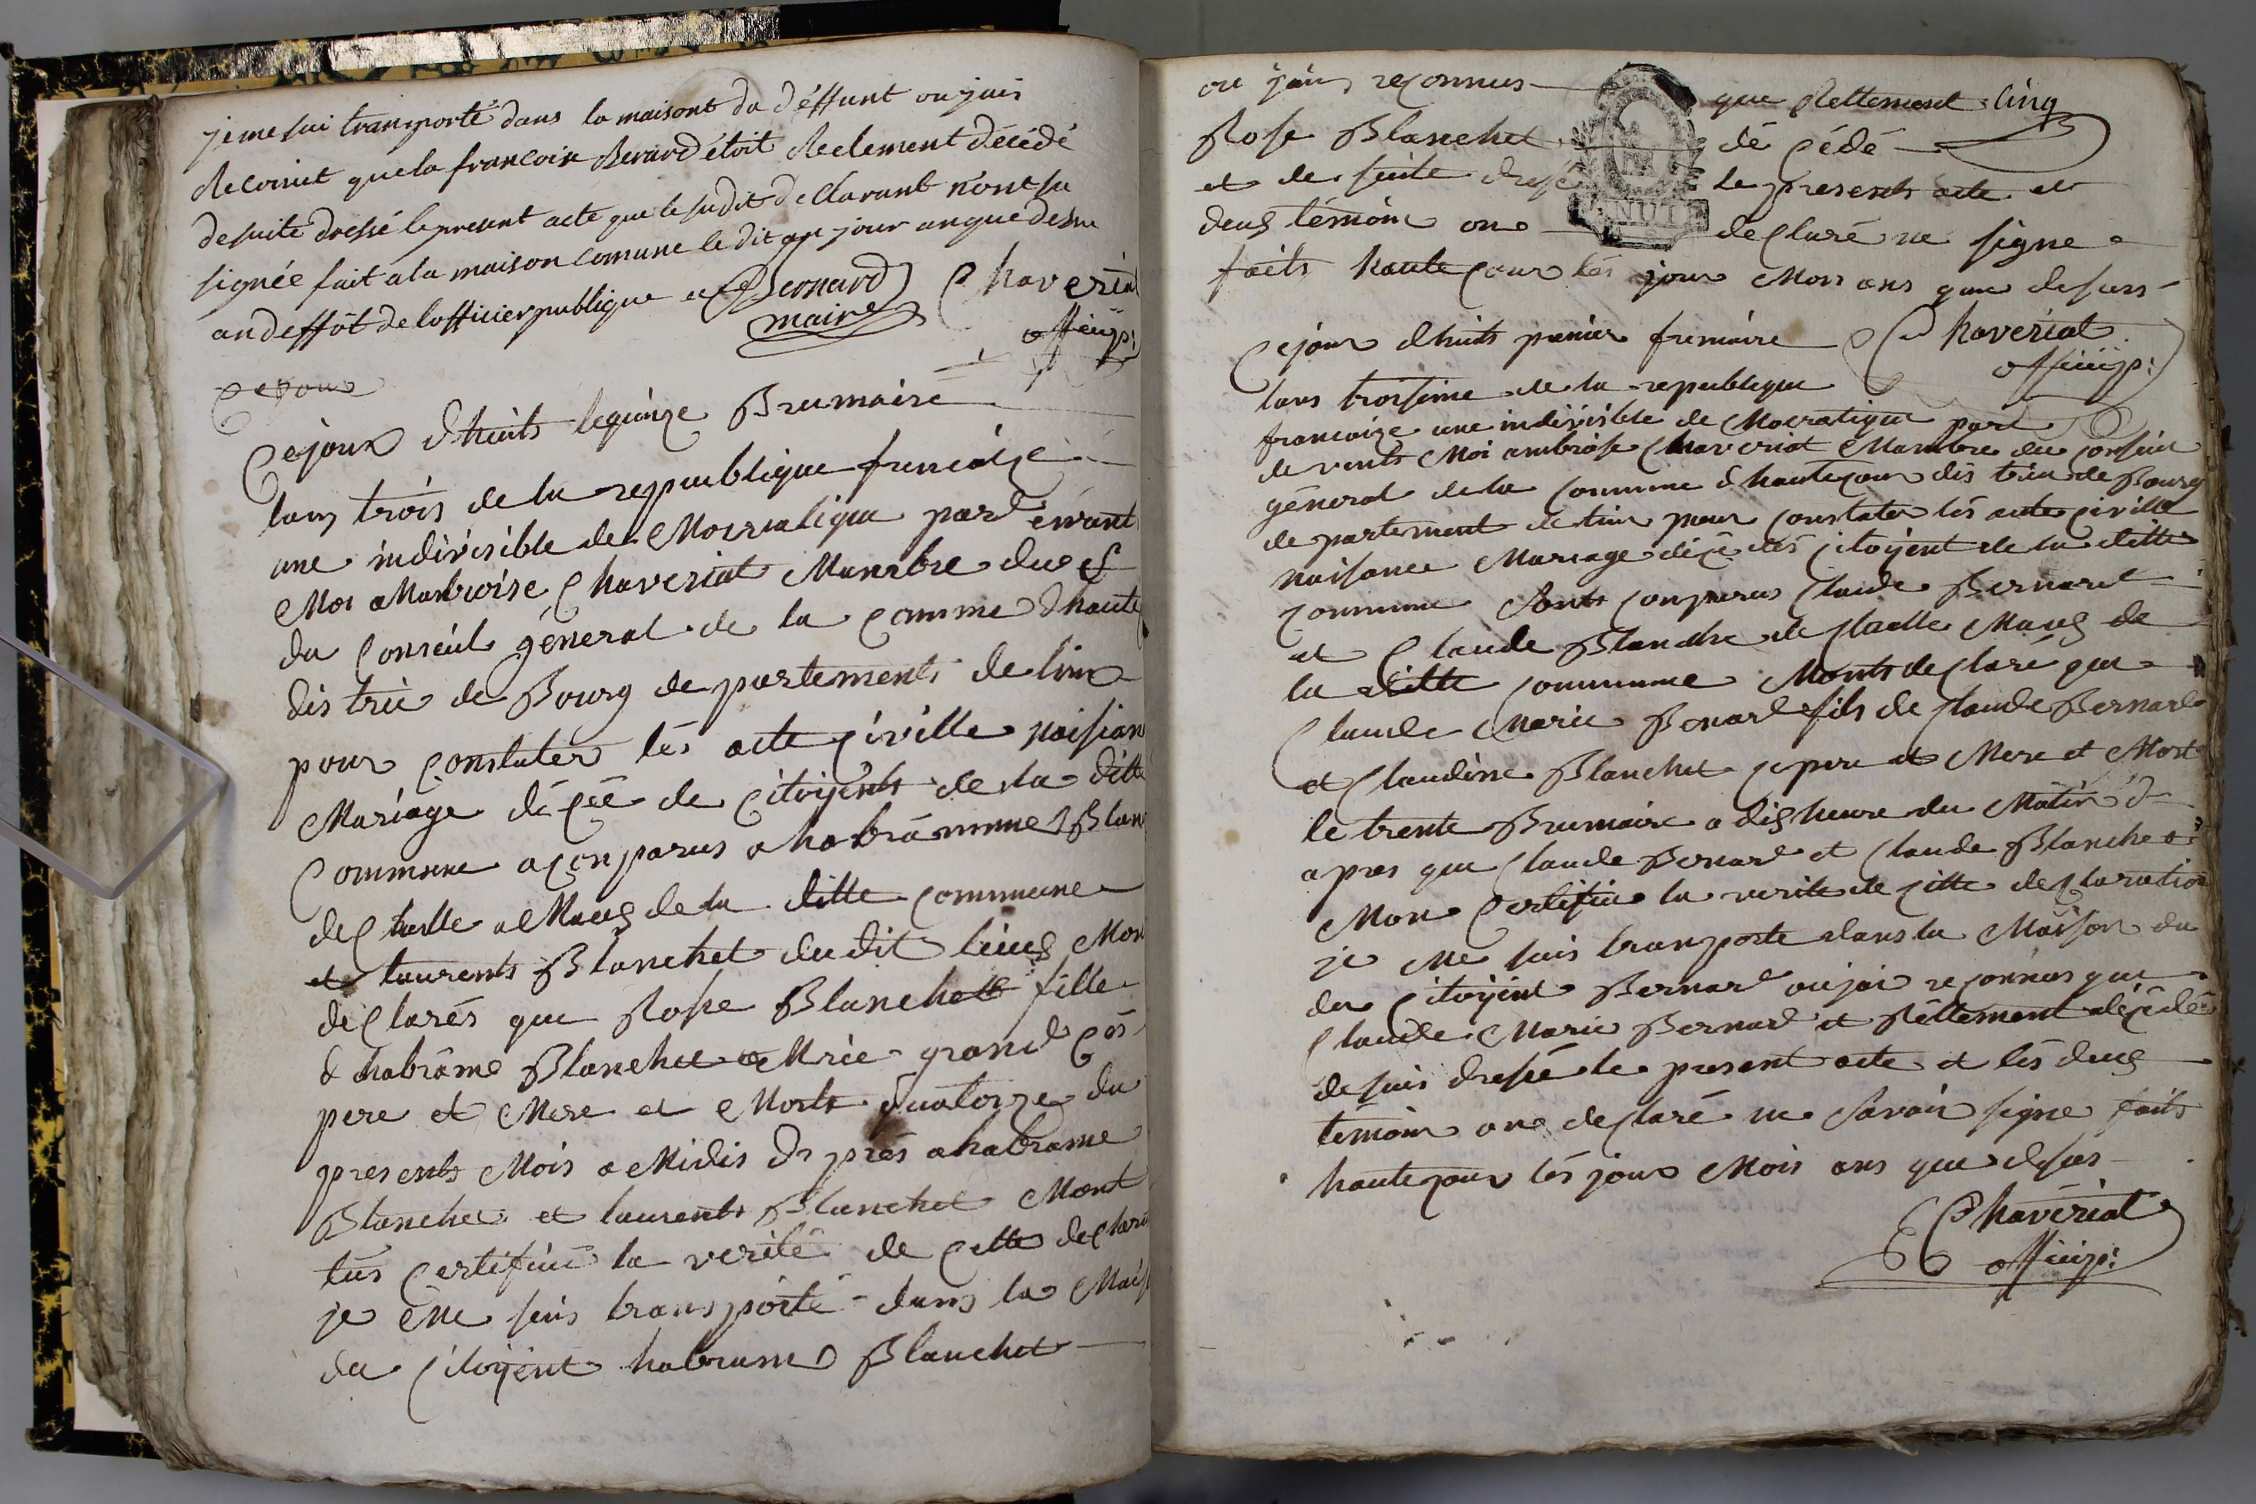 je me sui transporté dans la maisont du déffunt ou jais
Reconnet que la francoise Berard étoit Réelement décédé
de suite dressé le present acte que le sudit decllarant n'ont su
signée fait a la maison comune le dit an jour an que desu
an deffôt de lofficier publique Bernard Chaveriat
maire officiip:
Ce jour
Ce jour dhuits le quinze Brumaire
lans trois de la reppublique francaise
une indivisible de Mocratique pard evant
Moi aMambroise Chaveriat Manrbre du C
du Conseul général de la Comme dhaute
distric de Bourg de partements de linx
pour Constater lés acte civille naisian
Mariage décéé de Citoyients de la ditte
Commune a Conparus ahabramme Blan
de Challe a Maus de la ditte Commune
et laurents Blanchet du dit lieus Mon
declarés que Rosse Blanchett fille
dhabrâme Blanchet et Mrie grand
pere et Mere et Morts quatorze du
presents Mois a Midis Dr prés ahabrame
Blanchet et laurents Blanchet Mont
tus Certifiué la verité de cette declara
je Me suis transporté dans la Mais
du Citoyient habrame Blanchet
ou jais reconnus que Rellement Cinq
Rose Blanchet décédé
et de suite dresé le presents acte et
deus témoin one declaré ne signe
faits haute Cour lés jour Mois ans que desurs
Ce jour dhuits premier frimaire Chaveriat
lans troisiéme de la republique officiip:
francaize une indivisible de Mocratique part
de vents Moi ambroise Chaveriat Manbre du Conseiu
géneral de la Commune dhautecour dis tric de Bourg
de partement de linx pour Constater lés acte civille
naisance Mariage décé dés Citoyient de la ditte
Commune Sonts Conparus Claude Bernard
et Claude Blanche de Challe Maus de
la ditte Commune Monts declaré que
Claude Marie Benard fils de Claude Bernard
et Claudine Blanchet ce pere et Mere et Mort
le trente Brumaire a dis heure du Matin d
apres que Claude Bernard et Claude Blanchet
Mon Certifiu la verite de citte declaration
je Me suis transporte dans la Maison du
du Citoyient Bernard ou jai reconnus que
Claude Marie Bernard et Réttement décédé
de suis dresé le present acte et lés deus
témoin one declaré ne Savoir signe faits
hautecour lés jour Mois ans que desus
Chaveriat
officiip: